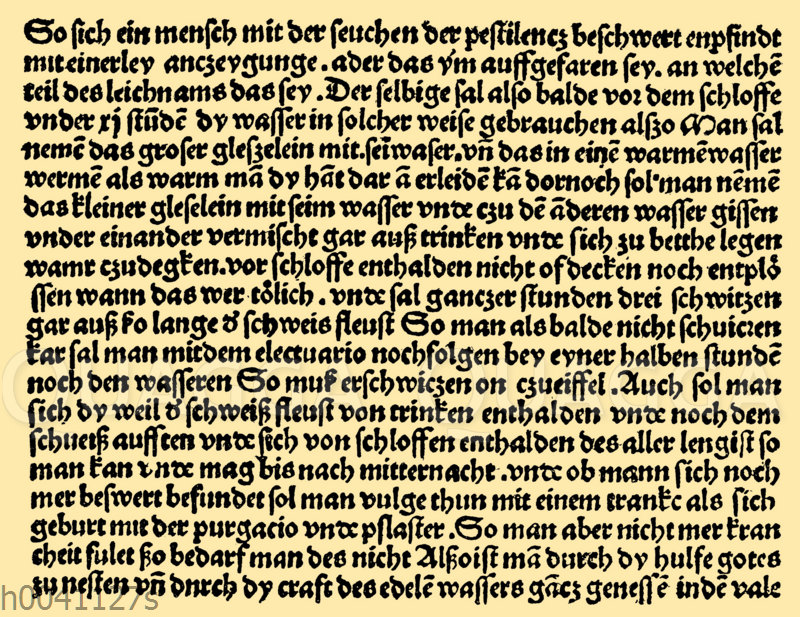 So sich ein mensch mit der seuchen der pestilencz beschwert enpfindt
mit einerley anczeygunge . ader das ym auffgefaren sey . an welchē
teil des leichnams das sey . Der selbige sal also balde vor dem schloffe
vnder xj stūdē dy wasser in solcher weise gebrauchen alszo Man sal
nemē das groser gleszelein mit . seī waser . vñ das in einē warmē wasser
wermē als warm mā dy hāt dar ā erleidē kā dornoch sol man nēmē
das kleiner gleselein mit seim wasser vnde czu dē āderen wasser gissen
vnder einander vermischt gar auß trinken vnde sich zu betthe legen
wamr czudegken . vor schloffe enthalden nicht of decken noch entplö
ssen wann das wer tölich . vnde sal ganczer stunden drei schwitzen
gar auß ko lange d' schweis fleust So man als balde nicht schuiczen
kar sal man mit dem electuario nochfolgen bey eyner halben stundē
noch den wasseren So muß er schwiczen on czueiffel . Auch sol man
sich dy weil d' schweiß fleust von trinken enthalden vnde noch dem
schueiß aufften vnde sich von schloffen enthalden des aller lengist so
man kan vnde mag bis nach mitternacht . vnde ob mann sich noch
mer beswert befundet sol man vulge thun mit einem tranke als sich
geburt mit der purgacio vnde pflaster . So man aber nicht mer kran
cheit fulet ßo bedarf man des nicht Alßo ist mā durch dy hulfe gotes
zu nesten vñ dnrch dy craft des edelē wassers gācz genessē in dē vale
h0041127s
QUAGGA QUAGGA